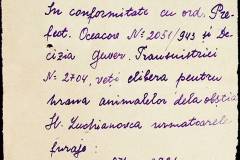 In conformitate cu ord. Pre-
fect. Oceacov Nº 2051/943 și De-
cizia Guver. Transnistriei
Nº 2704, veți elibera pentru
hrana animalelor dela obștia
Sf. Luchianovca următoarele
furaje :